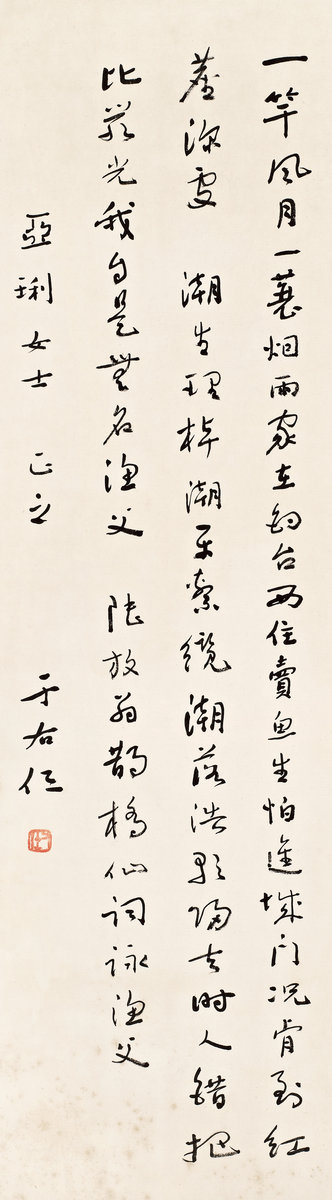 一竿风月一蓑烟雨家在钓台西住賣魚生怕進城门况肯到红
塵深处　潮生理棹潮平系缆潮落浩歌归去时人错把
比嚴光我自是無名渔父　陸放翁鹊橋仙词咏渔父
亞琍女士　正之　于右任